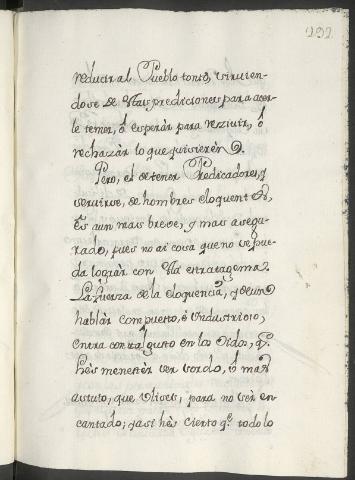 292
reducir al Pueblo tonto, sirvien-
dose de Vtas prediciones para acer-
le temer, ó esperàr para rezivir, ó
rechazàr lo que quisierèn.
Pero, el detener Predicadores, y
servirse, de hombres eloquentes,
Es aun mas breve, y mas asegu-
rado, pues no ai cosa que no se pue-
da logràr con Vta estratagema.
La fuerza de la eloquencia, y de un
hablàr compuesto, è Vndustrioso,
entra con tal gusto en los Oidos, q.
hès menestèr ser sordo, ò mas
astuto, que Vlises, para no sèr en-
cantado; y asi hès cierto q. todo lo